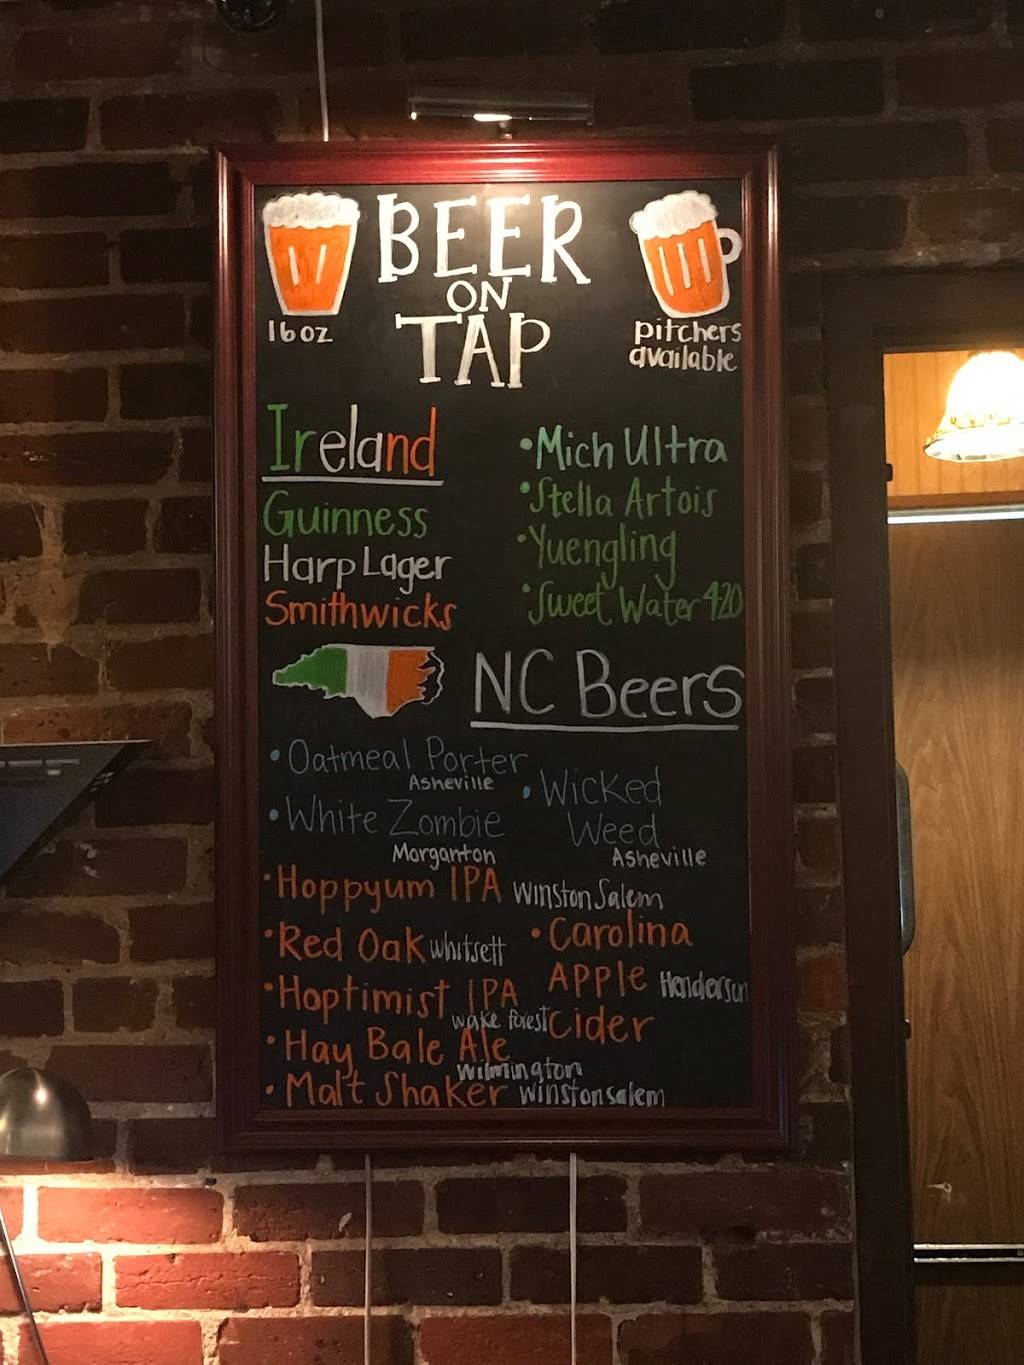 BEER
ON
TAP
16oz
pitchers
available
Ireland
Guinness
Harp Lager
Smithwicks
• Mich Ultra
• Stella Artois
• Yuengling
• Sweet Water 420
NC Beers
• Oatmeal Porter
Asheville
• White Zombie
Morganton
• Wicked
Weed
Asheville
• Hoppyum IPA Winston Salem
• Red Oak Whitsett
• Hoptimist IPA
wake forest
• Carolina
Apple Henderson
Cider
• Hay Bale Ale
Wilmington
• Malt Shaker Winston salem